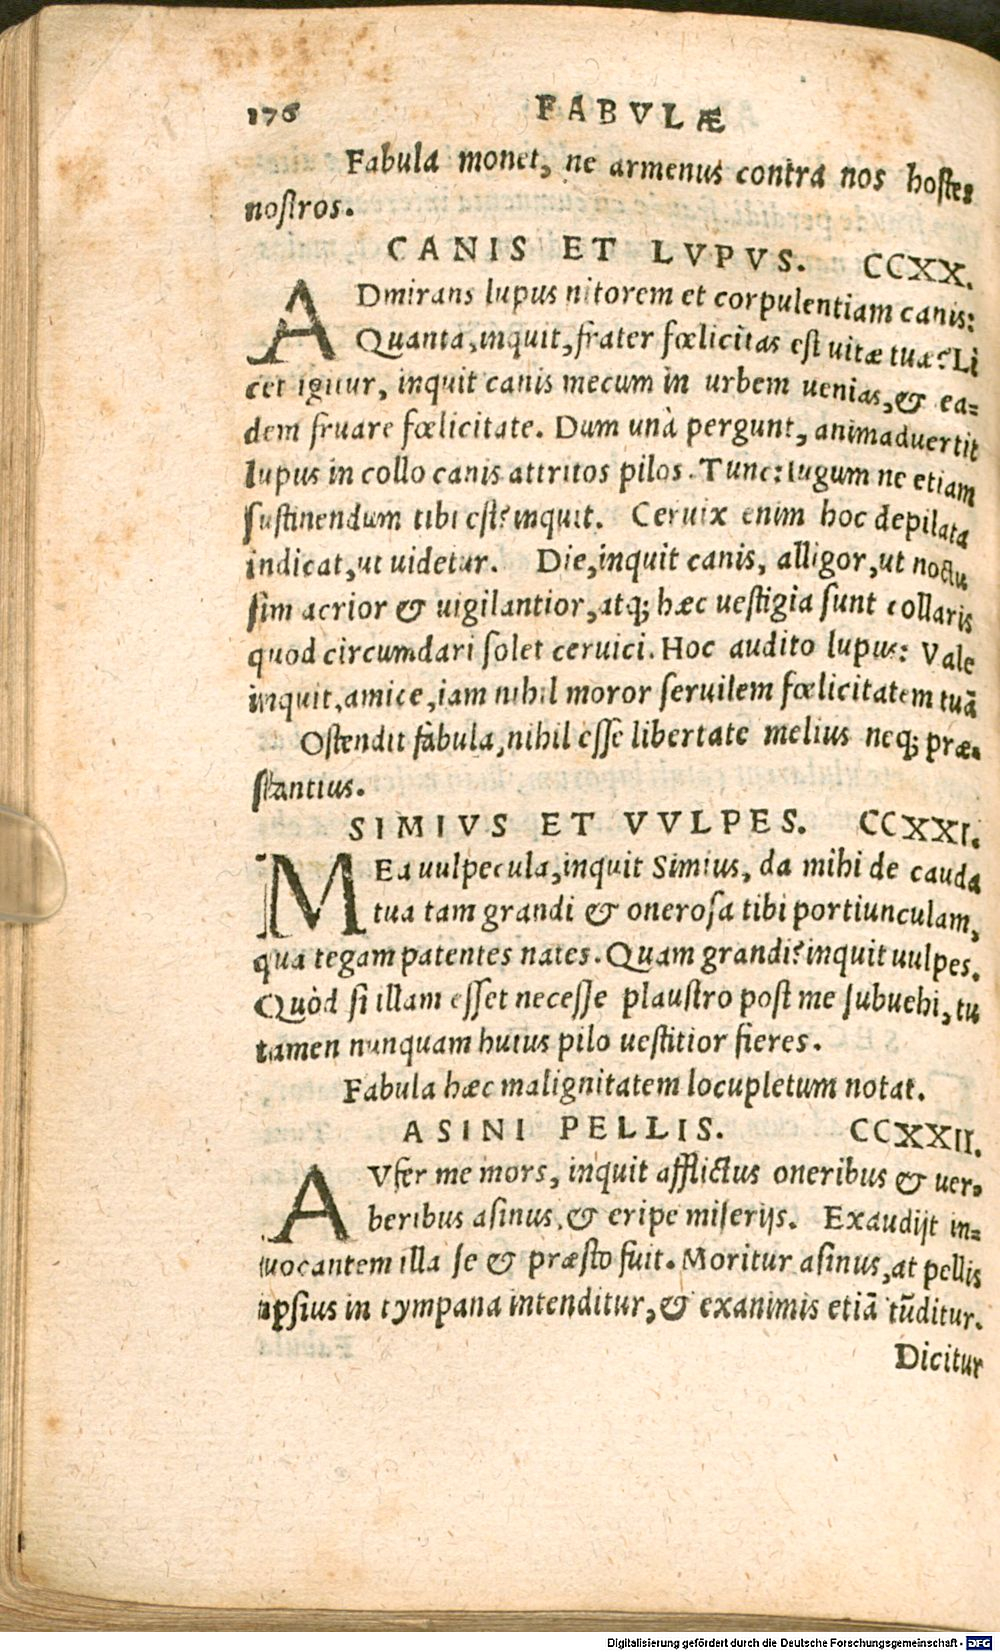 176 FABVLÆ
Fabula monet, ne armenus contra nos hostes
nostros.
CANIS ET LVPVS. CCXX.
ADmirans lupus nitorem et corpulentiam canis:
Quanta, inquit, frater fœlicitas est uitæ tuæ? Li
cet igitur, inquit canis mecum in urbem uenias, & ea=
dem fruare fœlicitate. Dum unà pergunt, animaduertit
lupus in collo canis attritos pilos. Tunc: Iugum ne etiam
sustinendum tibi est? inquit. Ceruix enim hoc depilata
indicat, ut uidetur. Die, inquit canis, alligor, ut noctu
sim acrior & uigilantior, atq; hæc uestigia sunt collaris
quod circumdari solet ceruici. Hoc audito lupus: Vale
inquit, amice, iam nihil moror seruilem fœlicitatem tuã
Ostendit fabula, nihil esse libertate melius neq; præ-
stantius.
SIMIVS ET VVLPES. CCXXI.
MEa uulpecula, inquit Simius, da mihi de cauda
tua tam grandi & onerosa tibi portiunculam,
qua tegam patentes nates. Quam grandi? inquit uulpes.
Quòd si illam esset necesse plaustro post me subuehi, tu
tamen nunquam huius pilo uestitior fieres.
Fabula hæc malignitatem locupletum notat.
ASINI PELLIS. CCXXII.
AVfer me mors, inquit afflictus oneribus & uer-
beribus asinus, & eripe miserijs. Exaudijt in=
uocantem illa se & præsto fuit. Moritur asinus, at pellis
ipsius in tympana intenditur, & exanimis etiã tũditur.
Dicitur
Digitalisierung gefördert durch die Deutsche Forschungsgemeinschaft - DFG